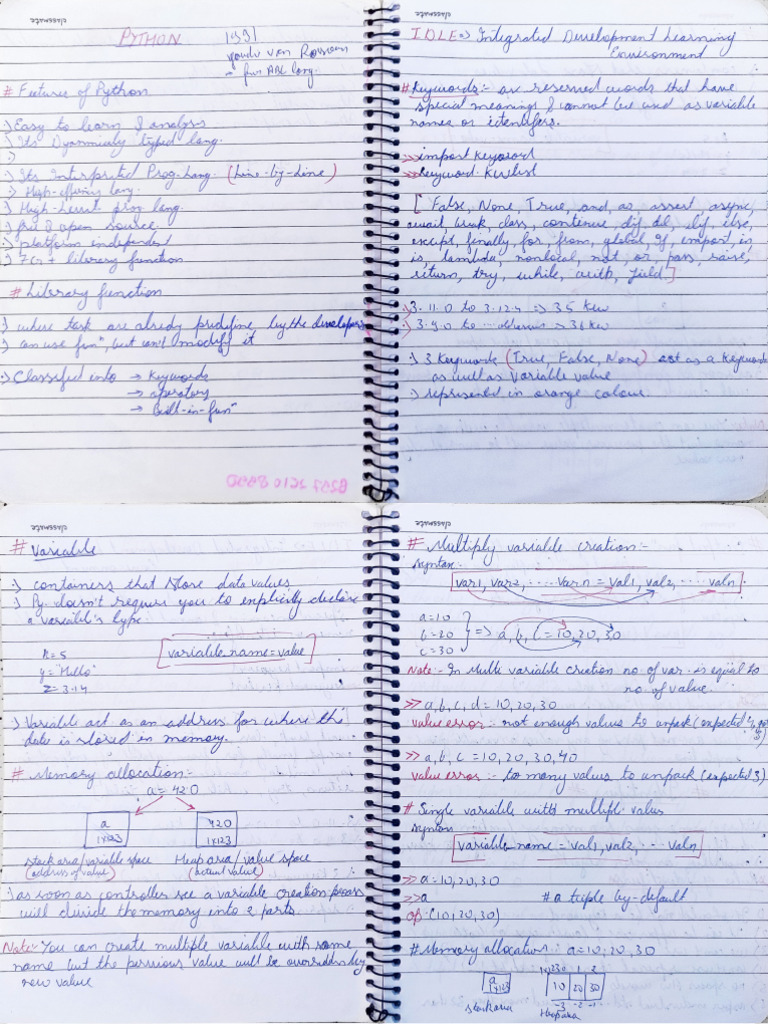 classmate
PYTHON 1991
Guido van Rossum
→ from ABC lang.
# Features of Python
Easy to learn & analyse
Its Dynamicly typed lang.
Its Interprited Prog. Lang. (Line-by-Line)
High-
High-level prog lang.
free & open source
platform independent
7Cr + library function
# Library function
where task are already predifine by the developer
can use funⁿ, but can't modify it
Classified into → Keywords
→ operators
→ built-in-funⁿ
classmate
IDLE => Integrated Development Learning
Environment
# Keywords:- are reserved words that have
special meanings & cannot be used as variable
names or identifiers.
>> import keyword
>> keyword.kwlist
[ False, None, True, and, as, assert, async,
await, break, class, continue, def, del, elif, else,
except, finally, for, from, global, if, import, in
is, lambda, nonlocal, not, or, pass, raise,
return, try, while, with, yield ]
3.11.0 to 3.12.4 => 35 kew
3.9.0 to ... => 36 kew
3 Keywords (True, False, None) act as a keywords
as well as variable value
represented in orange colour.
classmate
# Variable
containers that store data values
Py. doesn't requires you to explicitly declare
a variable's type.
x = 5
y = "Hello"
z = 3.14
variable_name = value
Variable act as an address for where the
data is stored in memory.
# Memory allocation:-
a = 420
a
1x123
420
1x123
stack area/variable space
(address of value)
Heap area/value space
(actual value)
as soon as controller see a variable creation process
will divide the memory into 2 parts.
Note:- You can create multiple variable with same
name but the pervious value will be overriden by
new value
classmate
# Multiply variable creation:-
syntax:-
var1, var2, ..... Var n = val1, val2, ..... valn
a=10
b=20
c=30
=> a, b, c = 10, 20, 30
Note:- In Multi variable creation no. of var. is equal to
no. of value.
>> a, b, c, d = 10, 20, 30
value error:- not enough value to unpack (expected 4, got
3)
>> a, b, c = 10, 20, 30, 40
value error:- to many values to unpack (expected 3)
# Single variable with multiple value
syntax
variable_name = val1, val2, ... valn
>> a = 10, 20, 30
>> a # a tuple by-default
op: (10, 20, 30)
# Memory allocation: a = 10, 20, 30
a
1x123
stack area
1x1230 1 2
10 20 30
-3 -2 -1
Heap area